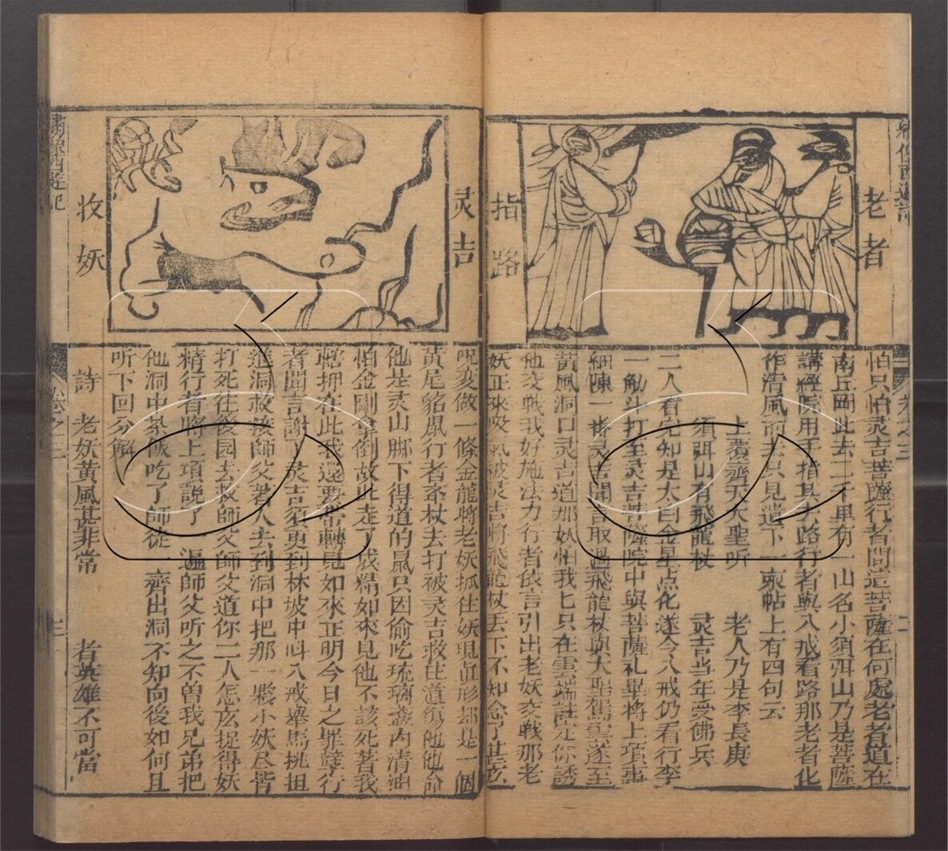 老者
指路
怕只怕灵吉菩薩行者問道菩薩在何處老者道在
南丘岡此去二千里有一山名小須弭山乃是菩薩
講經院用手指其去路行者與八戒看路那老者化
作清風而去只見遺下一柬帖上有四句云
上覆齊天大聖听 老人乃是李長庚
須弭山有飛龍杖 灵吉当年受佛兵
二人看完知是太白金星点化遂令八戒仍看行李
一觔斗打至灵吉菩薩院中與菩薩礼畢將上項事
細陳一遍灵吉開言取過飛龍杖與大聖駕雲遂至
黃風洞口灵吉道那妖怕我只在雲端
他交戰我好施法力行者依言引出老妖交戰那老
妖正來吸氣被灵吉將飛龍杖丟下不知念了甚么
灵吉
收妖
咒変做一條金龍將老妖抓住妖現真形却是一個
黃尾貂鼠行者掣杖去打被灵吉救住道復他他命
他是灵山脚下得道的鼠只因偷吃琉璃盞内清油
怕金剛拿倒故此走了成精如來見他不該死著我
轄押在此我還要帶轉見如來正明今日之罪孽行
者聞言謝了灵吉須臾到林坡中叫八戒牽馬挑担
進洞救援師父著人去到洞中把那一夥小妖尽皆
打死往後园去救師父師父道你二人怎庅捉得妖
精行者將上項說了一遍師父听之不曽我兄弟把
他洞中茶飯吃了師徒一齊出洞不知向後如何且
听下回分觧
詩 老妖黃風甚非常 者英雄不可當
卷之三